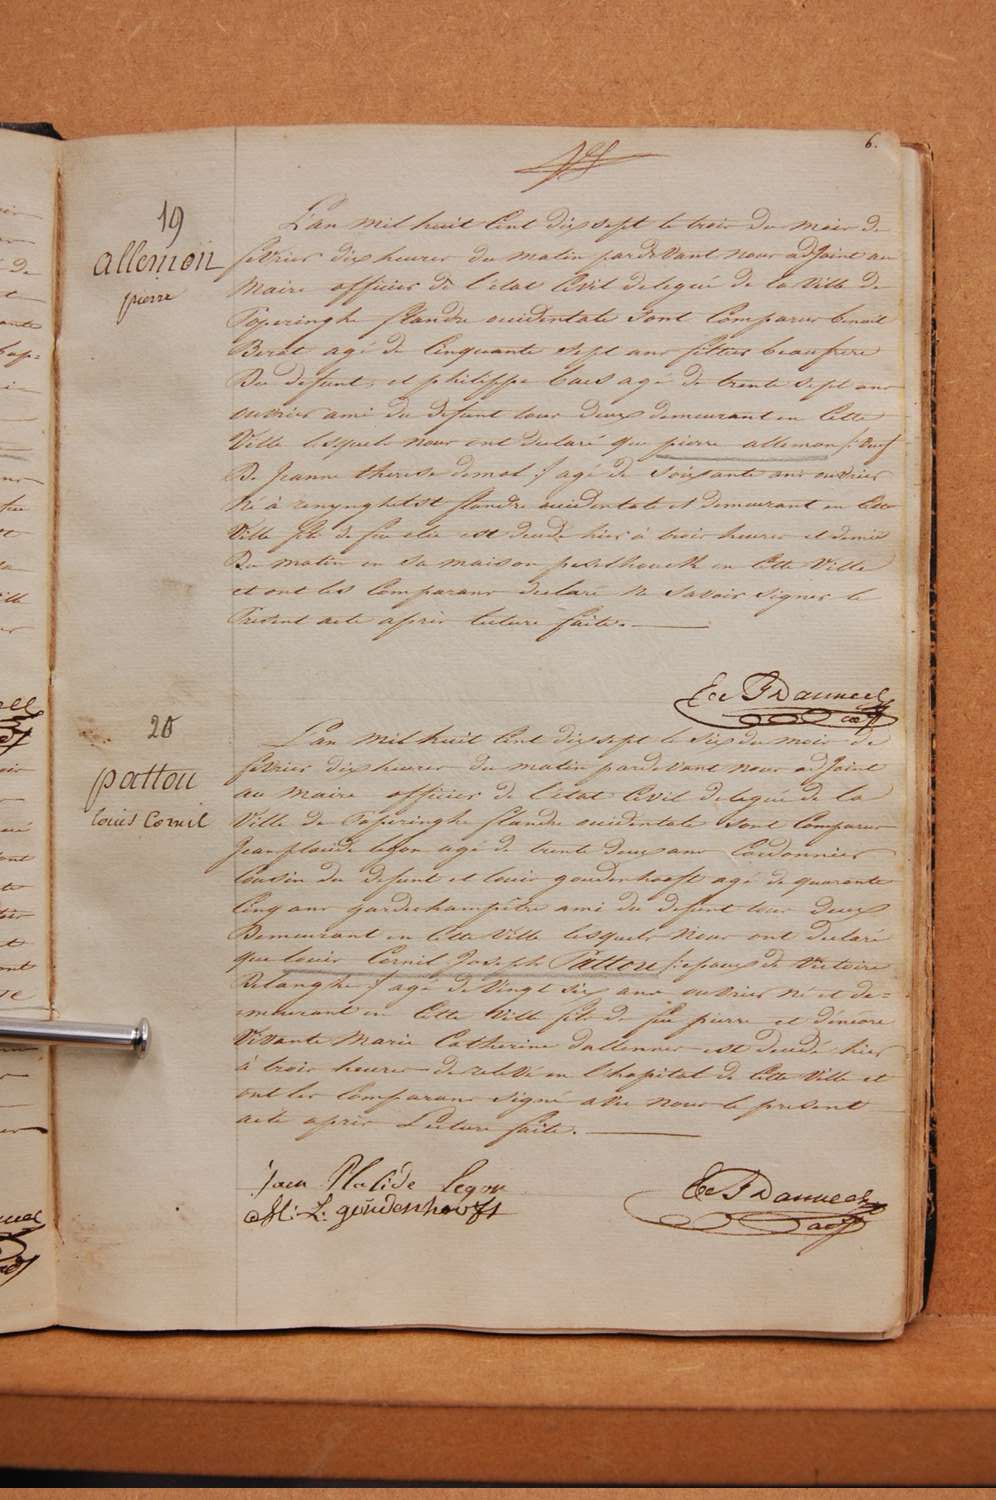 6.
19
allemon
pierre
L'an mil huit Cent dix sept le trois du mois de
février dix heures du matin pardevant nous adjoint au
Maire officier de l'état Civil delegué de la Ville de
Poperinghe flandre occidentale sont Comparus benoit
agé de Cinquante sept ans beaufrere
Du defunt, et philippe baes agé de trente sept ans
ouvrier ami du defunt tous deux demeurant en Cette
Ville lesquels nous ont declaré que pierre allemon /: veuf
De Jeanne therese demol :/ agé de soixante ans ouvrier
Né à renynghelst flandre occidentale et demeurant en Cette
Ville fils de feu elie est decedé hier à trois heures et demie
Du matin en sa maison en Cette Ville
et ont les Comparans declaré ne savoir signer le
Present acte après lecture faite.
20
pattou
louis Cornil
L'an mil huit Cent dix sept le six du mois de
février dix heures du matin pardevant nous adjoint
au maire officier de l'état Civil delegué de la
Ville de Poperinghe flandre occidentale sont Comparus
Jean placide legon agé de trente deux ans Cordonnier
Cousin du defunt et louis goudenhooft agé de quarante
Cinq ans gardechampêtre ami du defunt tous deux
Demeurant en Cette Ville lesquels Nous ont declaré
que louis Cornil Joseph Pattou /: epoux de Victoire
Belanghe :/ agé de Vingt six ans ouvrier né et de-
-meurant en Cette Ville fils de feu pierre et d'encore
Vivante Marie Catherine dallenner est decedé hier
à trois heures de relevé en l'hopital de Cette Ville et
ont les Comparans signé avec nous le present
acte après Lecture faite.
Jean Plaside legon
L. goudenhooft